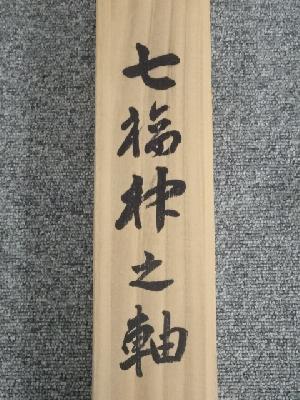 七福神之軸